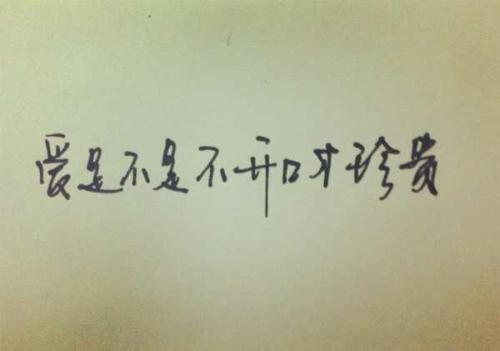 爱是不是不开口才珍贵